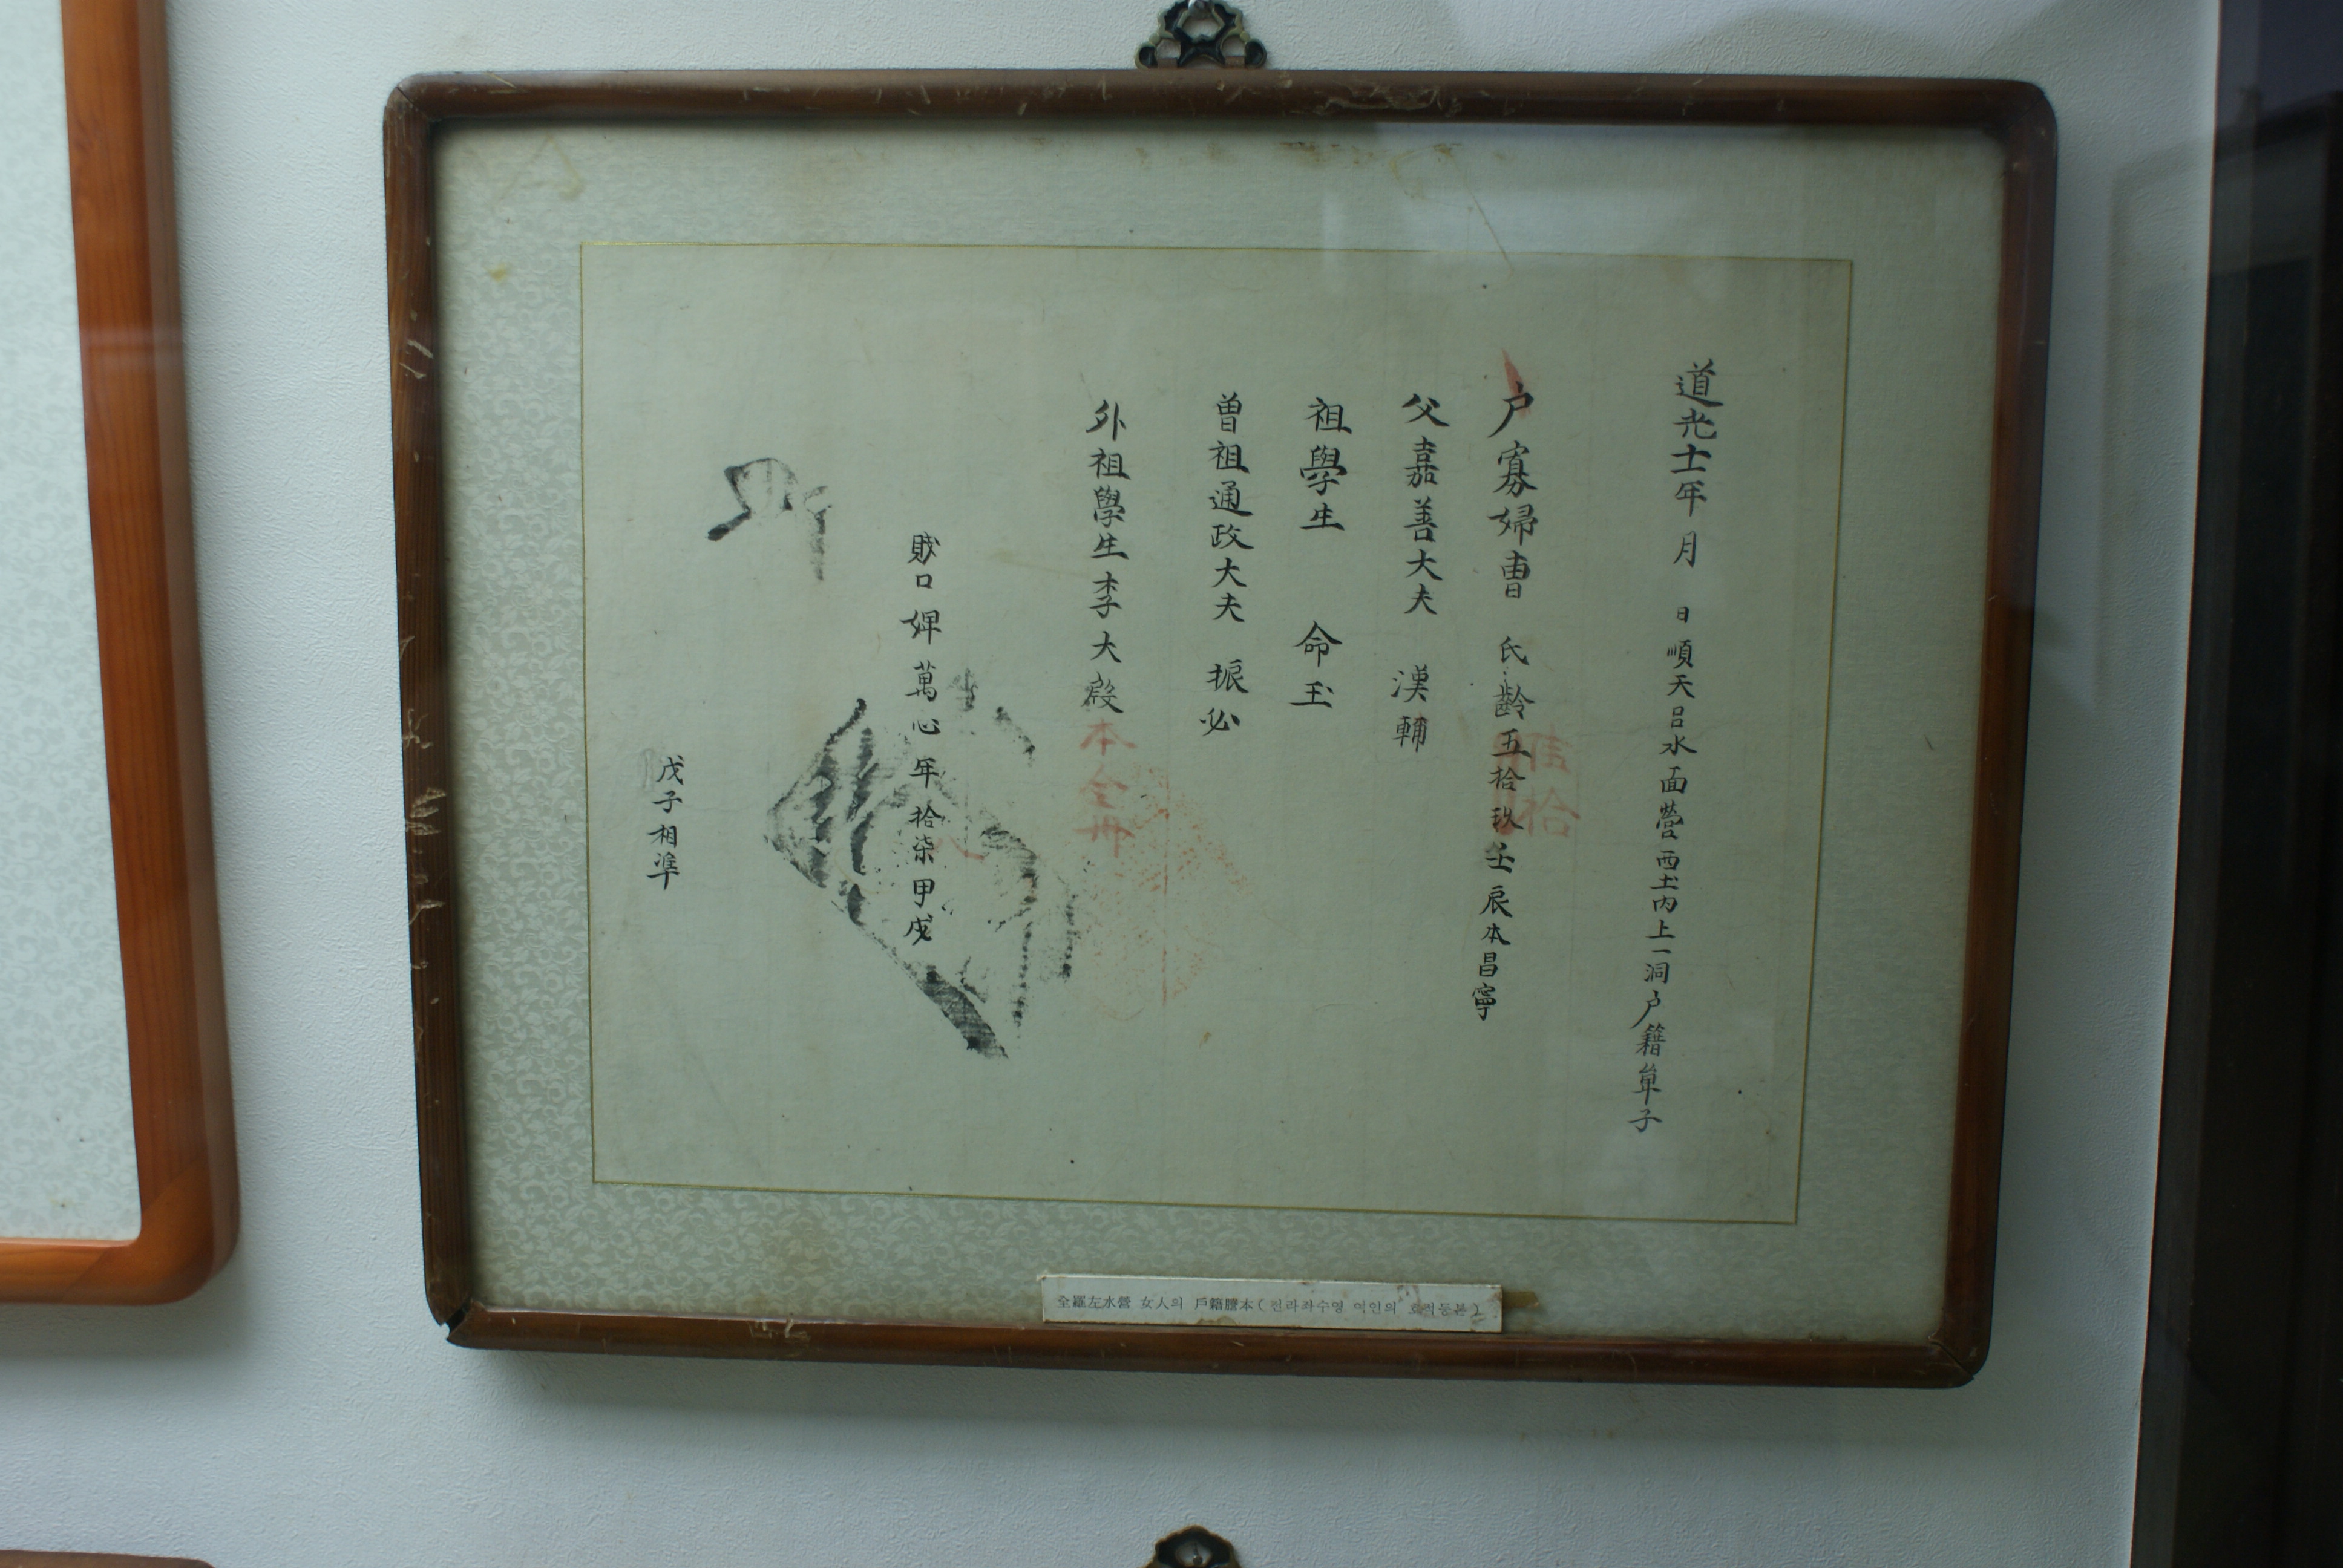 道光十一年 月 日順天呂水面營西土內上一洞户籍單子
户寡婦曺 氏齡五拾玖壬辰本昌寧
父嘉善大夫 漢輔
祖學生 命玉
曾祖通政大夫 振必
外祖學生李大殷
賤口婢萬心年拾柒甲戌
戊子相準
本全州
全羅左水營 女人의 戶籍謄本 (전라좌수영 여인의 호적등본)